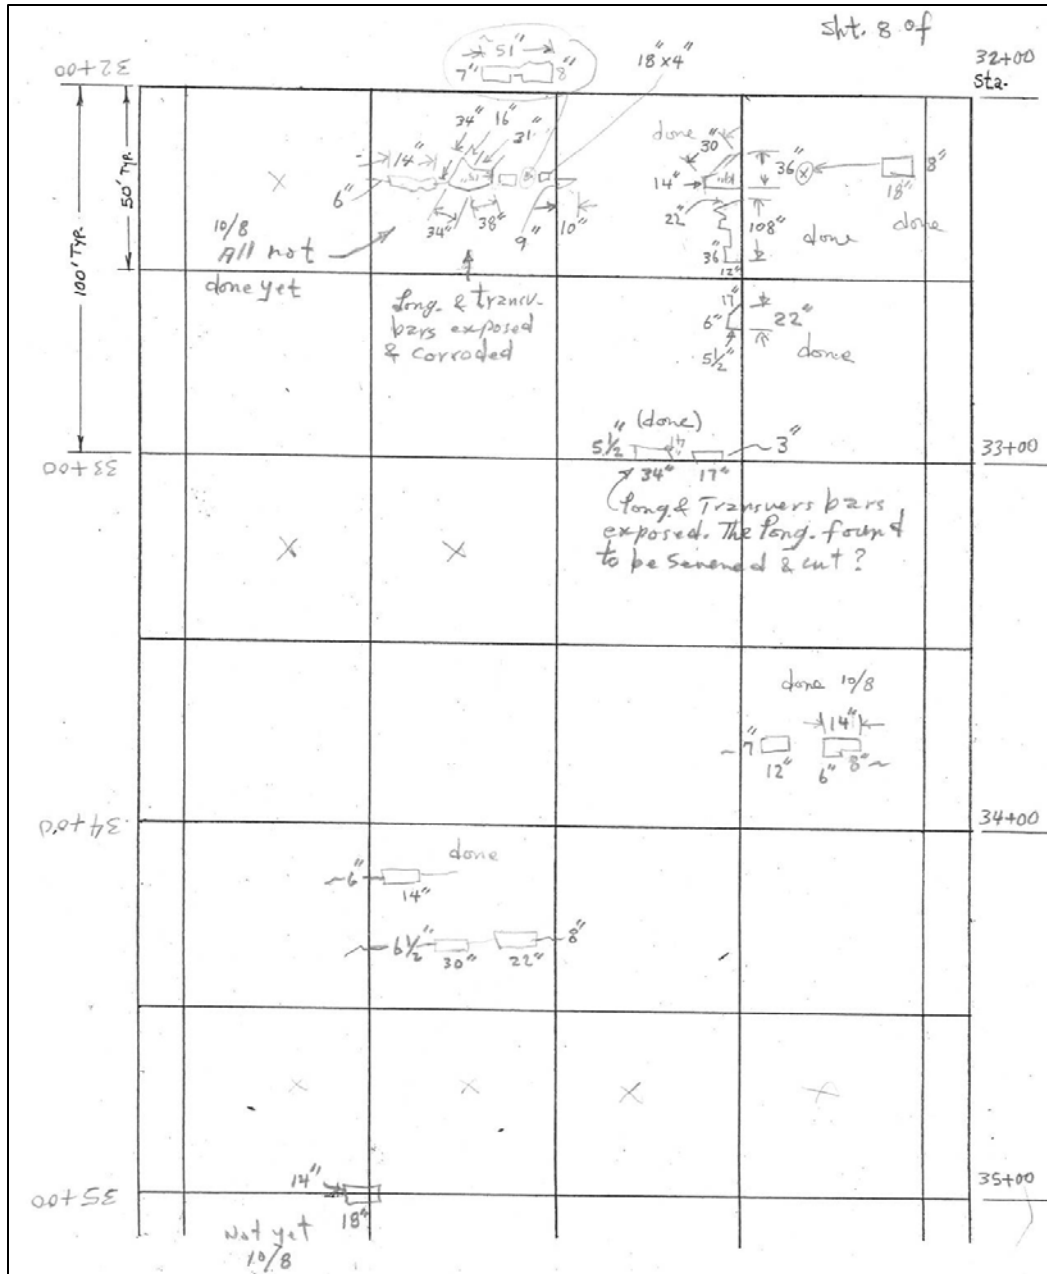 Sht. 8 of
32+00
Sta.
32+00
~ 51"
7" 8"
18" x 4"
34" 16" 31"
14"
6"
34" 38" 9" 10"
10/8
All not
done yet
Long. & transv.
bars exposed
& corroded
50' TYP.
100' TYP.
done
30"
14"
36"
8"
18"
done
22"
108"
done
36"
12"
17"
6"
22"
5 1/2"
done
33+00
33+00
(done)
5 1/2"
34" 17"
~ 3"
Long. & Transvers bars
exposed. The Long. found
to be Senened & cut?
done 10/8
14"
~ 7"
12" 6" 8" ~
34+00
34+00
done
~ 6"
14"
~ 6 1/2"
30" 22"
8"
35+00
35+00
14"
18"
Not yet
10/8